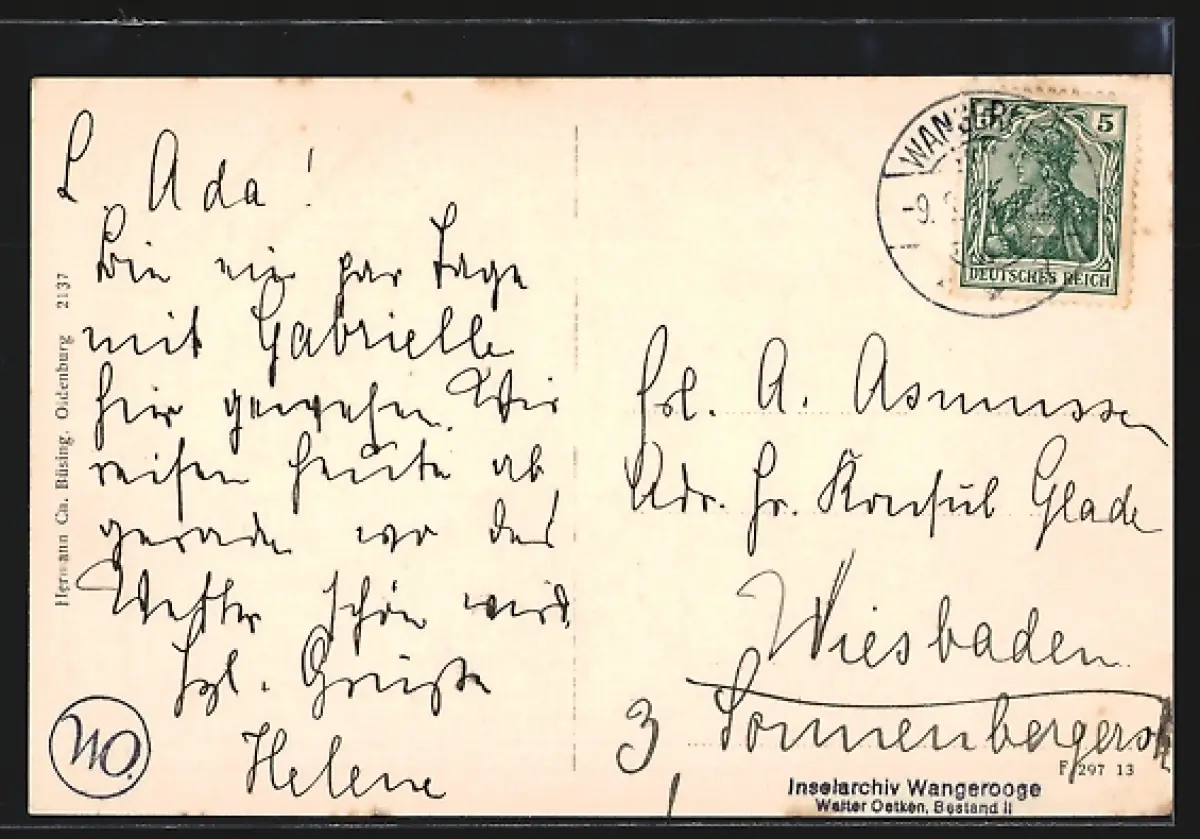 L. Ada!
Bin ein par Tage
mit Gabrielle
hier gewesen. Wir
reisen heute ab,
gerade wo das
Wetter schön wird.
Hzl. Grüsse
Helene
WO.
Hermann Ca. Büsing, Oldenburg 2137
WANGER
-9.
5
DEUTSCHES REICH
Frl. A. Asmussen
Adr. Hr. Konsul Glade
Wiesbaden
3, Sonnenbergerstr
F 297 13
Inselarchiv Wangerooge
Walter Oetken, Bestand II